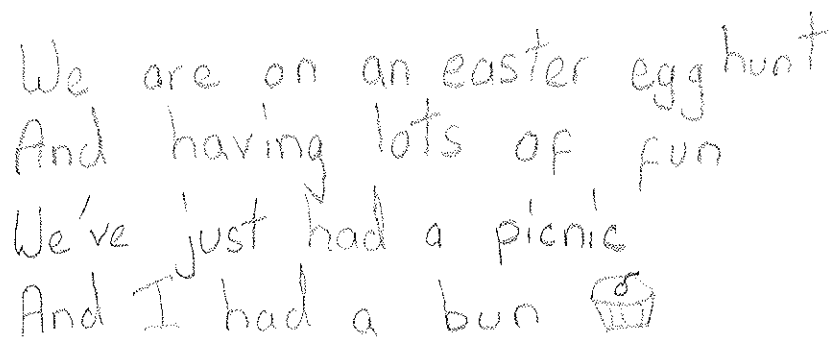 We are on an easter egg hunt
And having lots of fun
We've just had a picnic
And I had a bun